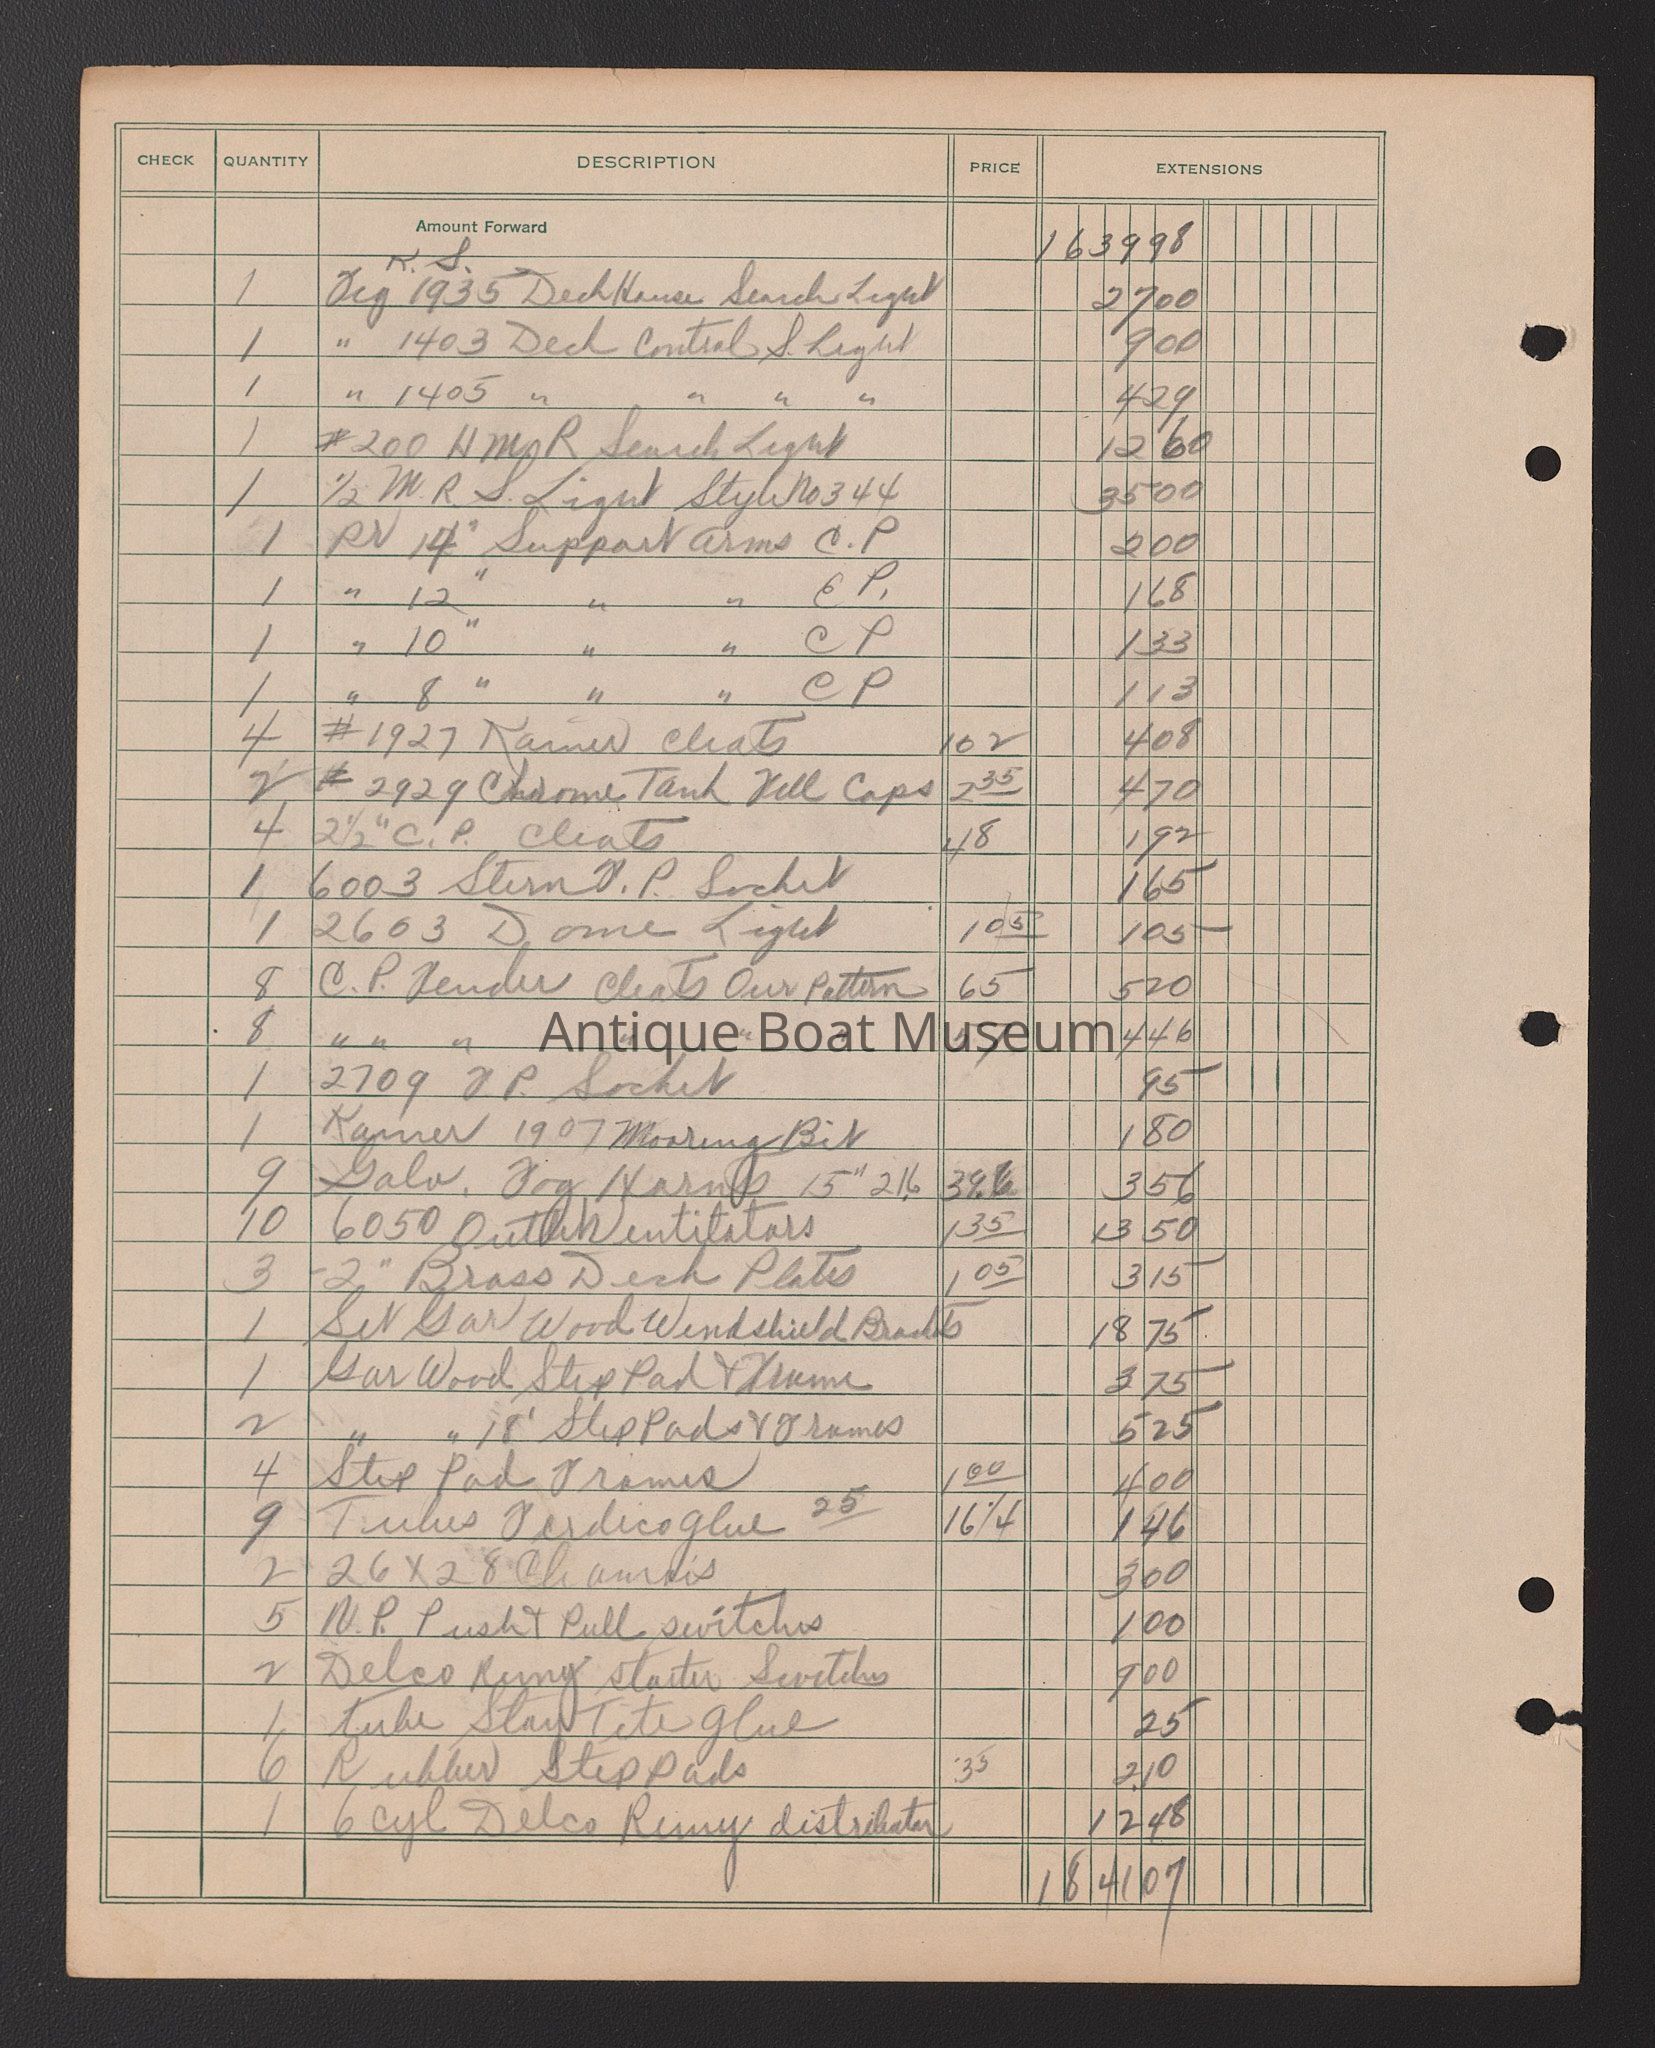 CHECK QUANTITY DESCRIPTION PRICE EXTENSIONS
Amount Forward 1639 98
K. S.
1 Fig 1935 Deck House Search Light 27 00
1 " 1403 Deck Control S. Light 9 00
1 " 1405 " " " " 4 29
1 #200 H M R Search Light 12 60
1 1/2 M. R. S. Light Style No 344 35 00
1 Pr 14" Support Arms C. P 2 00
1 " 12" " " C P. 1 68
1 " 10" " " C P 1 33
1 " 8" " " C P 1 13
4 #1927 Kainer Cleats 1 02 4 08
2 # 2929 Chrome Tank Fill Caps 2 35 4 70
4 2 1/2" C. P. Cleats 48 1 92
1 6003 Stern F. P. Socket 1 65
1 2603 Dome Light 1 05 1 05
8 C. P. Fender Cleats Our Pattern 65 5 20
8 " " " " " " 4 46
Antique Boat Museum
1 2709 F P. Socket 95
1 Kainer 1907 Mooring Bit 1 80
9 Galv. Fog Horns 15" 216 39.6 3 56
10 6050 Outlet Ventilators 1 35 13 50
3 -2" Brass Deck Plates 1 05 3 15
1 Set Gar Wood Windshield Brackets 18 75
1 Gar Wood Step Pad & Frame 3 75
2 " " 18' Step Pads & Frames 5 25
4 Step Pad Frames 1 00 4 00
9 Tubes Ferdico glue 25 16 1/4 1 46
2 26 X 28 Chamois 3 00
5 N. P. Push & Pull switches 1 00
2 Delco Remy starter Switches 9 00
1 tube Stay Tite glue 25
6 Rubber Step pads .35 2.10
1 6 cyl Delco Remy distributor 12 48
1841 07